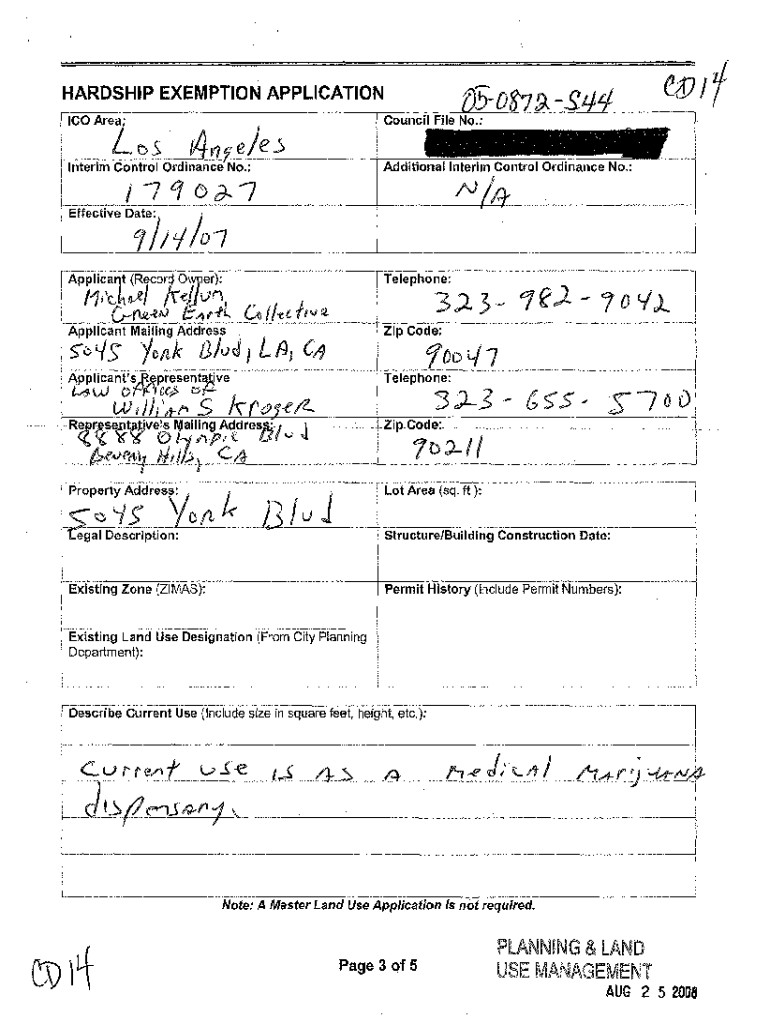 HARDSHIP EXEMPTION APPLICATION
05-0872-S44
CD14
ICO Area:
Los Angeles
Council File No.:
Interim Control Ordinance No.:
179027
Additional Interim Control Ordinance No.:
N/A
Effective Date:
9/14/07
Applicant (Record Owner):
Michael Kellum,
Green Earth Collective
Telephone:
323-982-9042
Applicant Mailing Address
5045 York Blvd, LA, CA
Zip Code:
90047
Applicant's Representative
Law Offices of
William S Kroger
Telephone:
323-655-5700
Representative's Mailing Address:
8888 Olympic Blvd
Beverly Hills, CA
Zip Code:
90211
Property Address:
5045 York Blvd
Lot Area (sq. ft.):
Legal Description:
Structure/Building Construction Date:
Existing Zone (ZIMAS):
Permit History (Include Permit Numbers):
Existing Land Use Designation (From City Planning
Department):
Describe Current Use (Include size in square feet, height, etc.):
Current use is as a medical marijuana
dispensary.
Note: A Master Land Use Application is not required.
CD14
Page 3 of 5
PLANNING & LAND
USE MANAGEMENT
AUG 25 2008